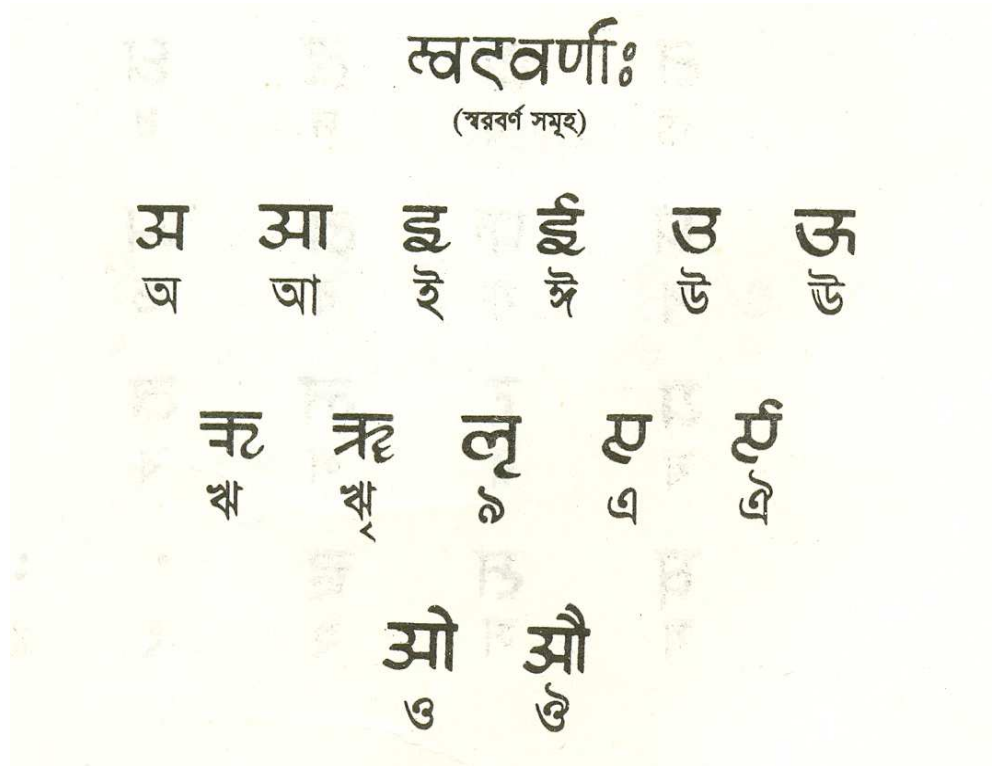 स्वरवर्णाः
(স্বরবর্ণ সমূহ)
अ आ इ ई उ ऊ
অ আ ই ঈ উ ঊ
ऋ ॠ लृ ए ऐ
ঋ ৠ ঌ এ ঐ
ओ औ
ও ঔ